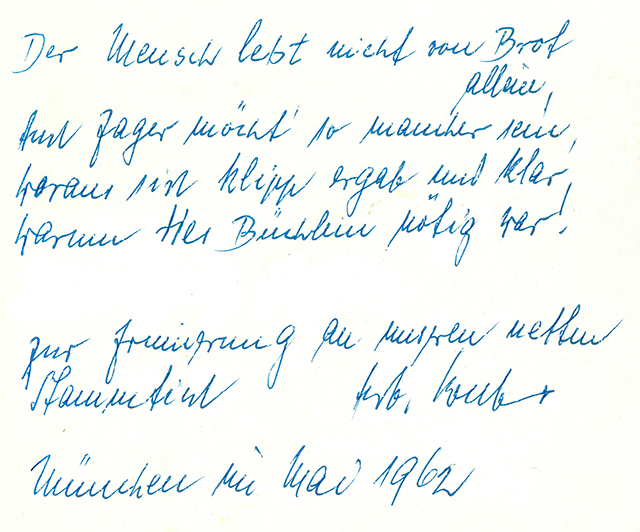 Der Mensch lebt nicht von Brot
allein,
Auch Jäger möcht' so mancher sein,
woraus sich klipp ergab und klar,
warum dies Büchlein nötig war!
zur Erinnerung an unseren netten
Stammtisch
München im Mai 1962